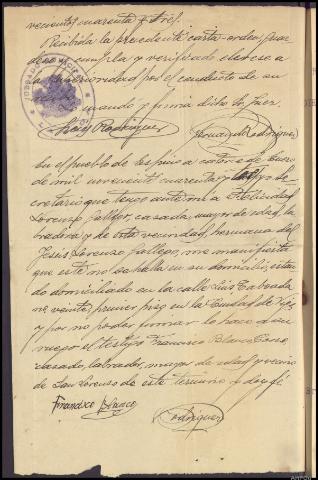 vecientos cuarenta y tres.
Recibida la precedente carta-orden, guar-
dese y cumpla y verificado elevese a
la superioridad por el conducto de su
mandó y firma dicho Sr. Juez.
Rodriguez
Rodriguez
JUZGADO
En el pueblo de a catorce de Enero
de mil novecientos cuarenta y tres, yo Se-
cretario que tengo ante mi a Felicidad
Lorenzo Gallego, casada, mayor de edad, la-
bradora y de esta vecindad, hermana de
Jesus Lorenzo Gallego, me manifiesta
que este no se halla en su domicilio, estan-
do domiciliado en la calle Luis Taboada
nº veinte, primer piso en la Ciudad de Vigo
y por no poder firmar lo hace a su
ruego el testigo Francisco Blanco
casado, labrador, mayor de edad y vecino
de San Lorenzo de este termino y doy fé
Francisco Blanco
Rodriguez